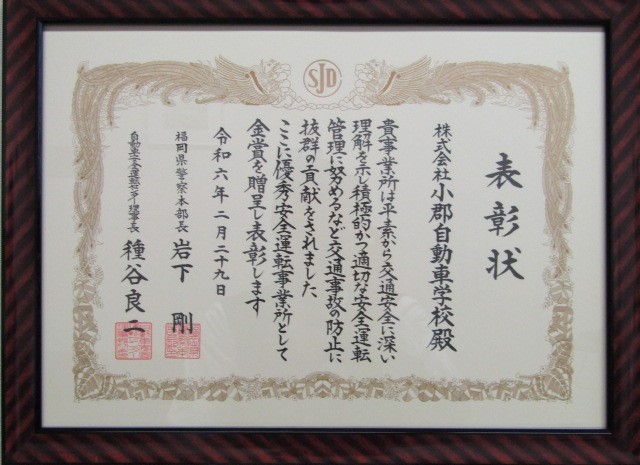 SJD
表彰状
株式会社小郡自動車学校殿
貴事業所は平素から交通安全に深い
理解を示し積極的かつ適切な安全運転
管理に努めるなど交通事故の防止に
抜群の貢献をされました
ここに優秀安全運転事業所として
金賞を贈呈し表彰します
令和六年二月二十九日
福岡県警察本部長 岩下 剛
自動車安全運転センター理事長 種谷良二